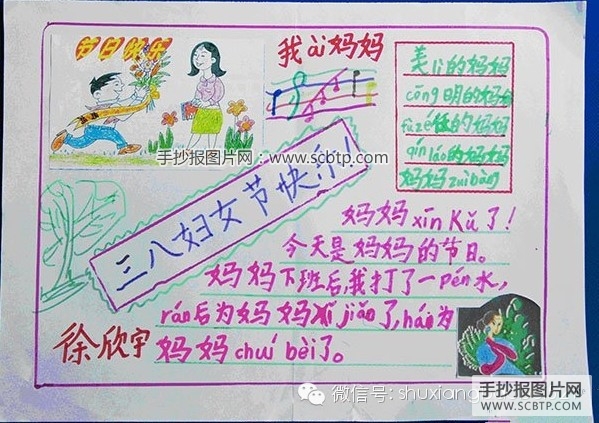 节日快乐
我ài妈妈
美lì的妈妈
cōng明的妈妈
fùzé任的妈妈
qín láo的妈妈
妈妈zuì bàng
手抄报图片网：www.scbtp.com
三八妇女节快乐!
妈妈xīn Kǔ了!
今天是妈妈的节日。
妈妈下班后,我打了一Pén水,
rán后为妈妈xǐ jiǎo了,hái为
妈妈chuí bèi了。
徐欣宇
微信号: shuxiang
手抄报图片网
WWW.SCBTP.COM